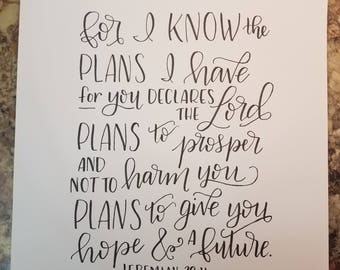 for I KNOW the
PLANS I have
for you DECLARES THE Lord
PLANS to prosper
AND NOT TO harm you
PLANS to give you
hope & a future.
JEREMIAH 29:11